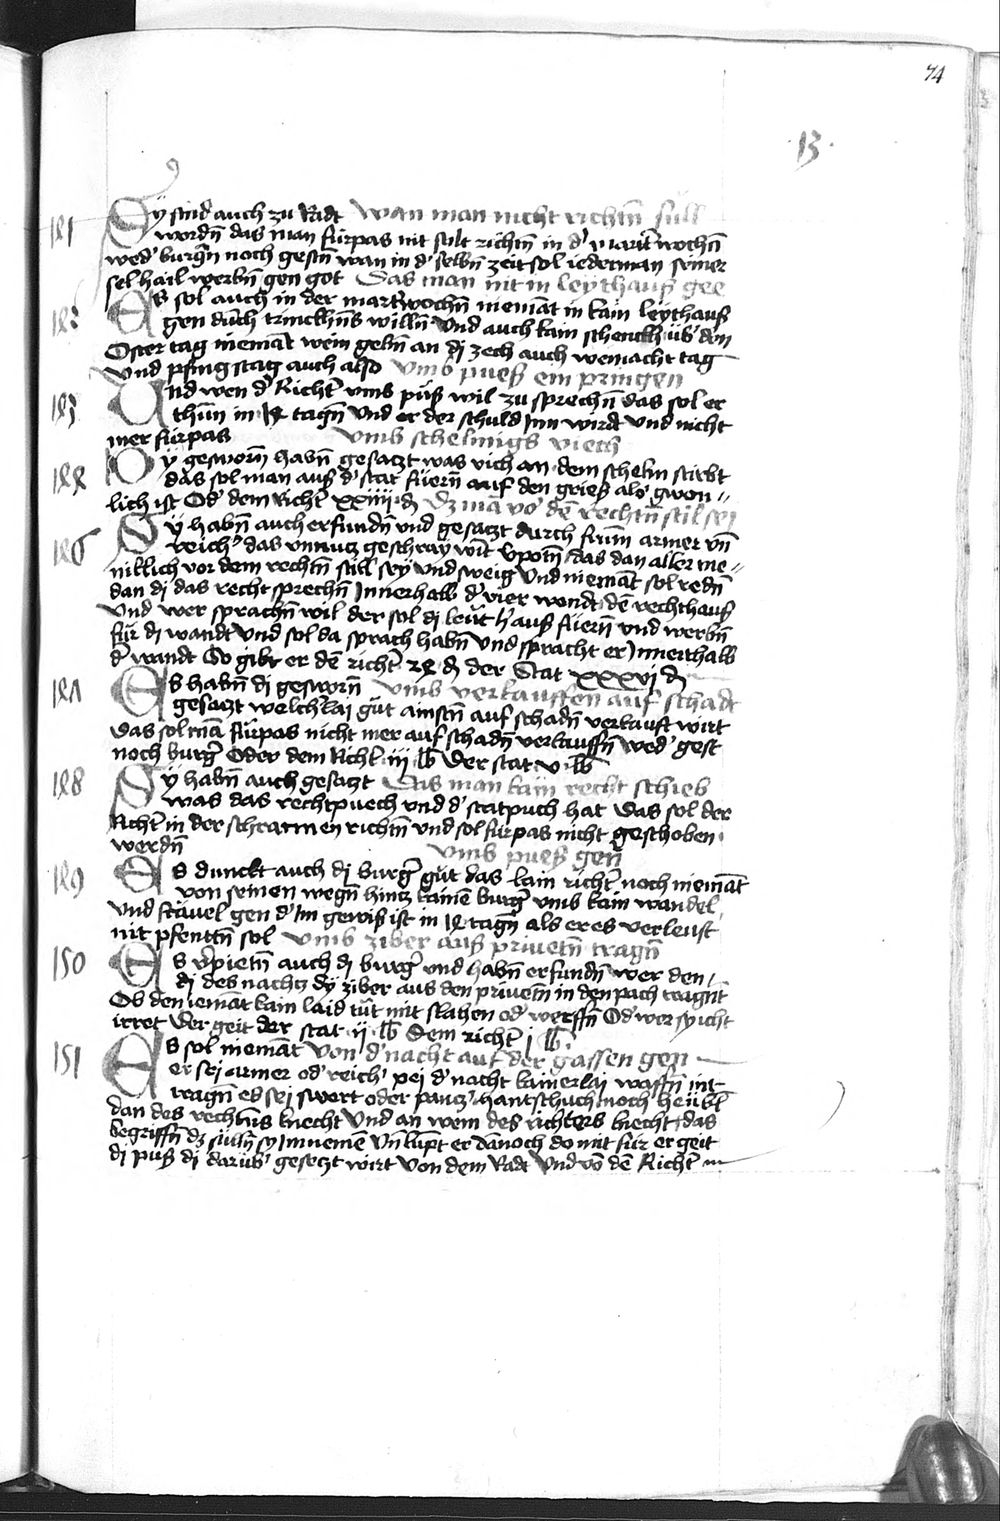 74
.13.
141 Dÿ sind auch zu Radt Wan man nicht richtn̄ süll
wordn̄ das man fürpas nit solt richtn̄ in d' marterwochn̄
wed' burgn̄ noch gestn̄ wan in d' selbn̄ zeit sol iederman seiner
sel hail werbn̄ gen got Das man nit in leythauß gee
142 Es sol auch in der marterwochn̄ niemāt in kain leythauß
gen durch trinckhn̄s willn̄ Und auch kain schenckh üb' den
Oster tag niemāt wein gebn̄ an di zech auch weinacht tag
Und pfingstag auch also Umb pueß ein pringen
143 Und wen d' Richt' umb püß wil zu sprechn̄ das sol er
thun in 14 tagn̄ Und er der schuld Inn wirdt Und nicht
mer fürpas Umb schelmigs viech
144 Dÿ gesworn̄ habn̄ gesatzt was vich an dem schelm stirbt
das sol man auß d' stat füern̄ auf den grieß als gwon
lich ist Od' dem Richt' xxiiii d dz mā vo' dē rechtn̄ stil sei
146 Dÿ habn̄ auch erfundn̄ und gesatzt durch frum̄ armer vn̄
reich' das unnutz geschray wirt Upotn̄ das dan aller me
niklich vor dem rechtn̄ still sey und sweig Und niemāt sol redn̄
dan di das recht sprechn̄ Innerhalb d' vier wendt dē rechthauß
Und wer sprachn̄ wil der sol di leüt h'auß füern̄ und werbn̄
für di wandt Und sol da sprach habn̄ Und spracht er Innerhalb
d' wandt So gibt er dē richt' 72 d der Stat xxxvi d
147 Es habn̄ di gesworn̄ Umb verkauffen auf schadt
gesatzt welch'lai gut ainstn̄ auf schadn̄ verkauft wirt
das sol mā fürpas nicht mer auf schadn̄ verkauffn̄ wed' gest
noch burg' Oder dem Richt' iii lb Der stat v lb
148 Dÿ habn̄ auch gesatzt Das man kain recht schieb
was das rechtpuech und d' statpuch hat Das sol der
Richt' in der schrannen richtn̄ und sol fürpas nicht geschoben
werdn̄ Umb pueß gen̄
149 Es dunckt auch di burg' gut das kain richt' noch niemāt
von seinen wegn̄ hintz kainē burg' umb kain wandel
und frävel gen d' Im gewiß ist in 14 tagn̄ als er es verleust
nit pfenttn̄ sol Umb ziber auß privetn̄ tragn̄
150 Es v'pietn̄ auch di burg' und habn̄ erfundn̄ wer den
di des nachtz dÿ ziber aus den privetn̄ in den pach tragnt
Ob den iemāt kain laid tut mit slahen od' werffn̄ Od' wer sy icht
irret Der geit der stat ii lb Dem richt' j lb
151 Es sol niemāt Von d' nacht auf der gassen gen
er sei armer od' reich' pei d' nacht kainerlai waffn̄ nit
tragn̄ es sei swert oder pantz' hantschuch noch heübl
dan des rechtn̄s knecht Und an wem des richters knecht das
begriffn̄ dz sulln̄ sy Im nemē Un̄ laupt er dannoch do mit für er geit
di puß di darüb' gesetzt wirt Von dem Radt Und vō dē Richt'